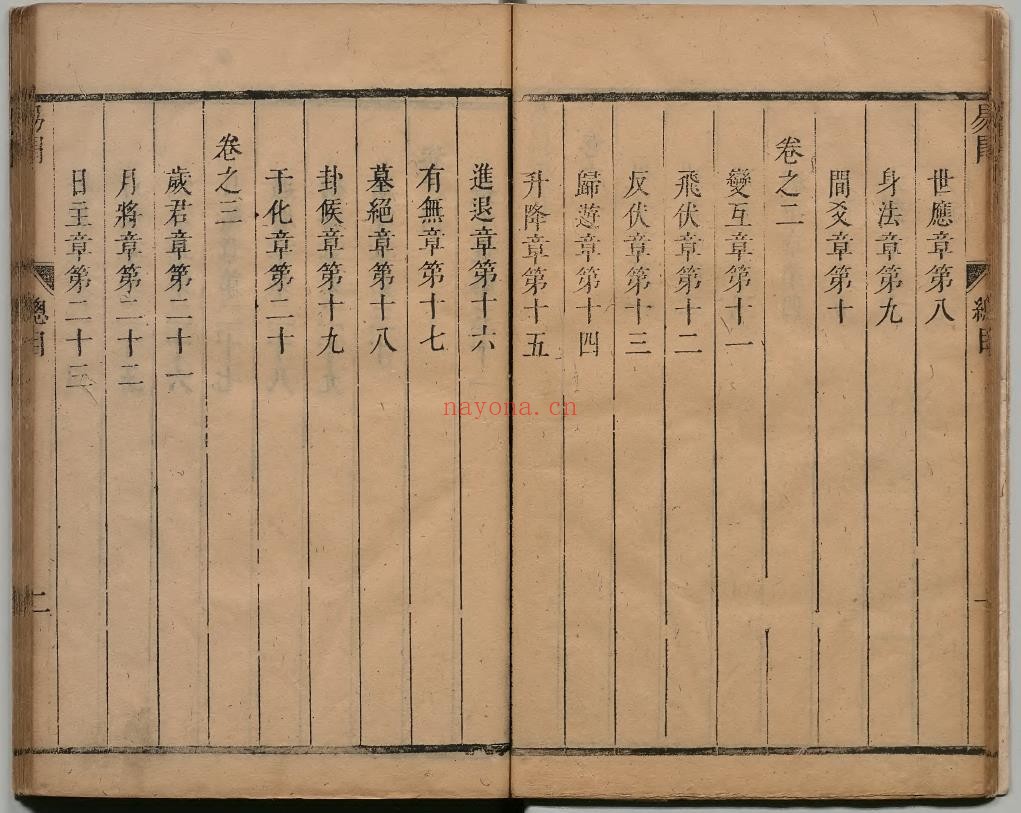 世應章第八
身法章第九
間爻章第十
卷之二
變互章第十一
飛伏章第十二
反伏章第十三
歸遊章第十四
升降章第十五
進退章第十六
有無章第十七
墓絕章第十八
卦候章第十九
干化章第二十
卷之三
歲君章第二十一
月將章第二十二
日主章第二十三
總目
二
nayona.cn